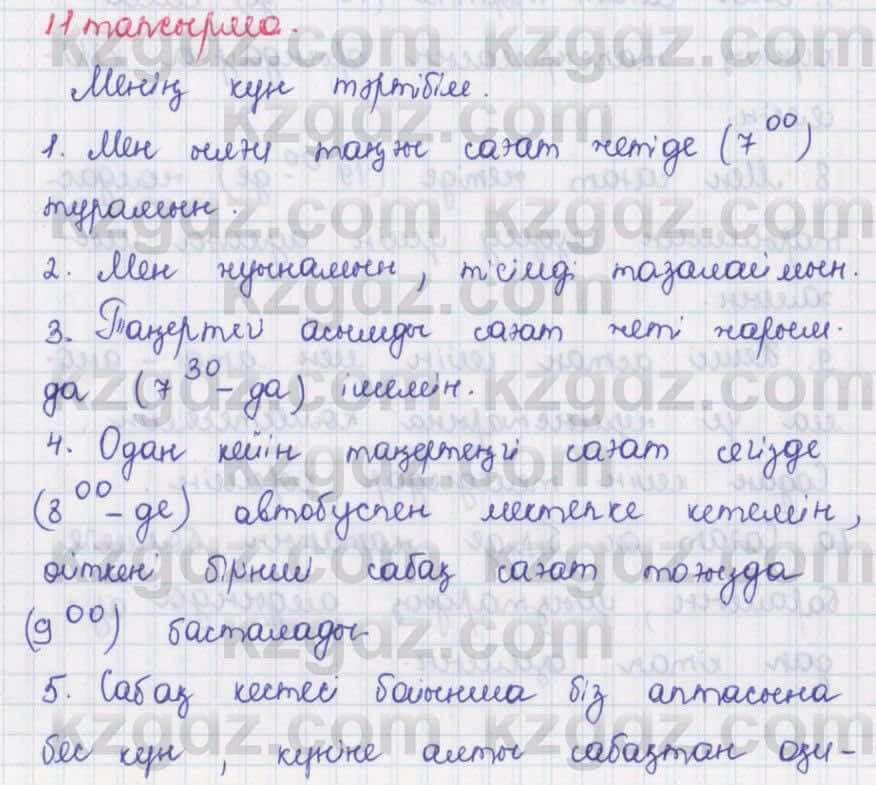 11 тапсырма.
Менің күн тәртібім.
1. Мен әлжі таңғы сағат жетіде (7⁰⁰)
тұрамын.
2. Мен жуынамын, тісімді тазалаймын.
3. Таңертегі асымды сағат жеті жарым-
да (7³⁰-да) ішемін.
4. Одан кейін таңертеңгі сағат сегізде
(8⁰⁰-де) автобуспен мектепке кетемін,
өйткені бірнші сабақ сағат тоғызда
(9⁰⁰) басталады
5. Сабақ кестесі бойынша біз аптасына
бес күн, күніне алты сабақтан оқи-
kzgdz.com